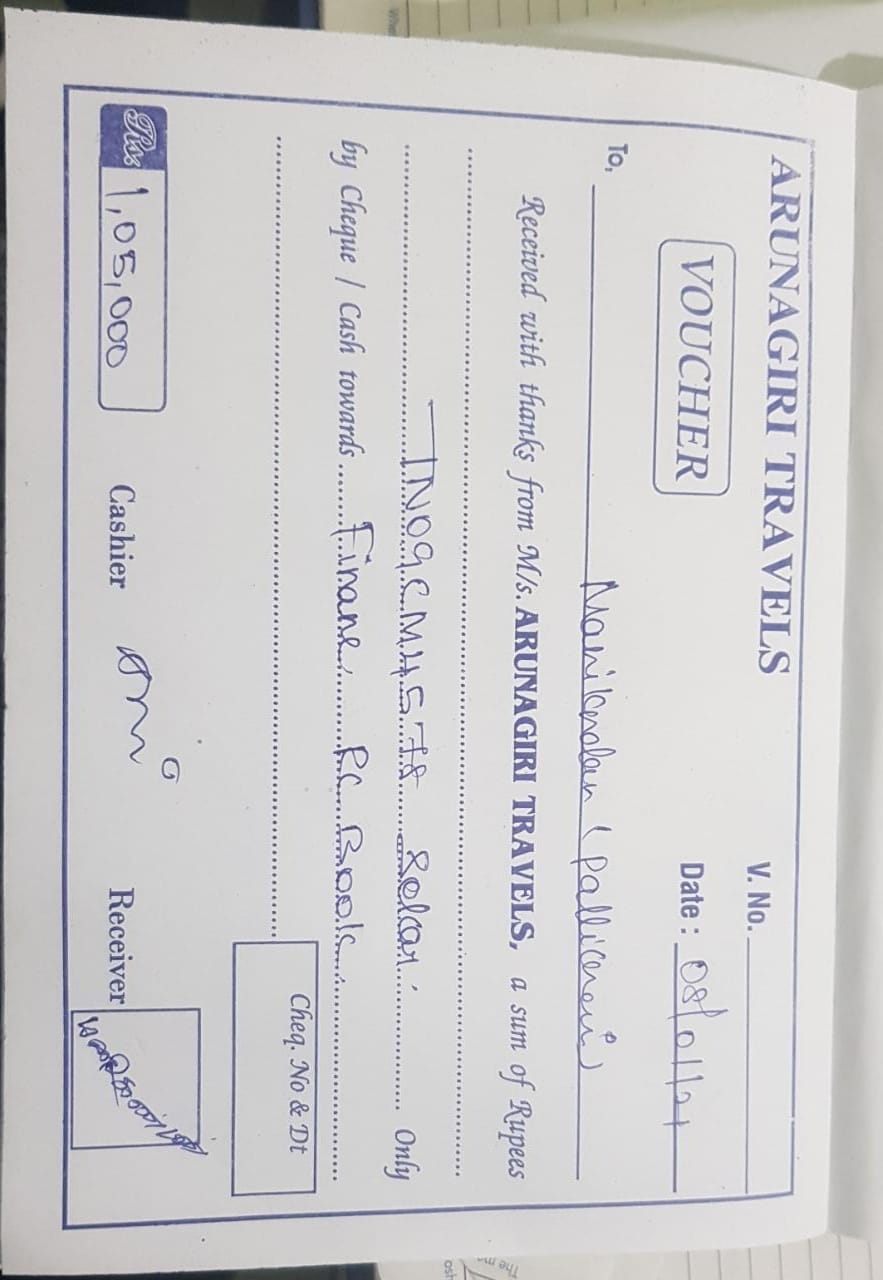 ARUNAGIRI TRAVELS
V. No.
VOUCHER
Date : 08/01/21
To, Manikandan (Pallikaranai)
Received with thanks from M/s. ARUNAGIRI TRAVELS, a sum of Rupees
TN09CM4578 Only
by Cheque / Cash towards Finane RC Book
Cheq. No & Dt
Rs. 1,05,000 Cashier Receiver